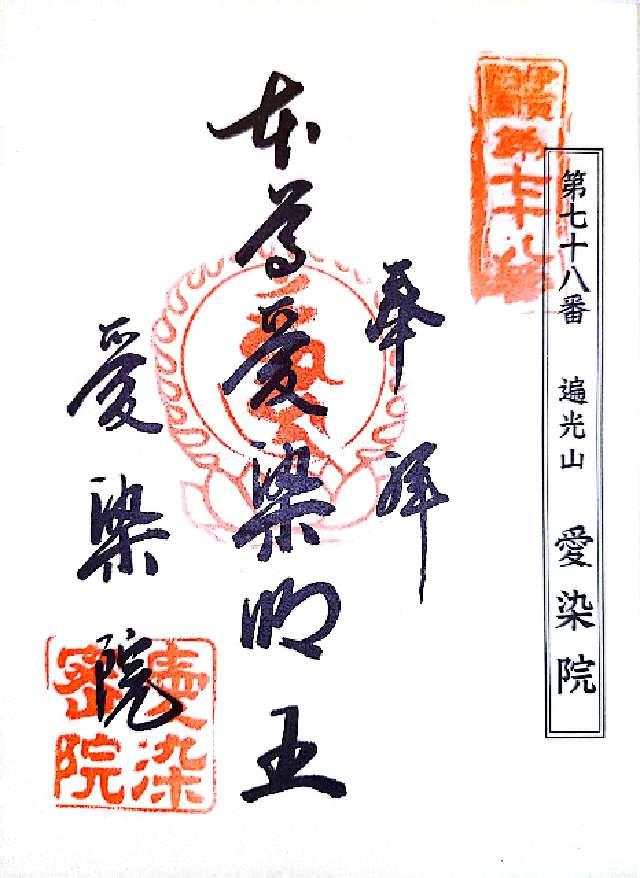 第七十八番 遍光山 愛染院
第七十八
奉拝
本尊愛染明王
愛染院